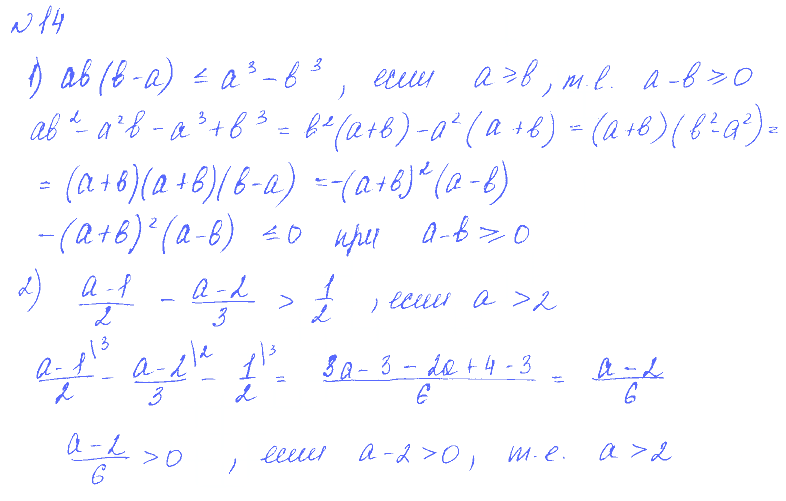 №14
1) ab(b-a) ≤ a³-b³, если a≥b, т.е. a-b≥0
ab²-a²b-a³+b³ = b²(a+b)-a²(a+b) = (a+b)(b²-a²)=
= (a+b)(a+b)(b-a) = -(a+b)²(a-b)
-(a+b)²(a-b) ≤0 при a-b≥0
2) (a-1)/2 - (a-2)/3 > 1/2, если a>2
(a-1)/2\3 - (a-2)/3\2 - 1/2\3 = (3a-3-2a+4-3)/6 = (a-2)/6
(a-2)/6 >0, если a-2>0, т.е. a>2